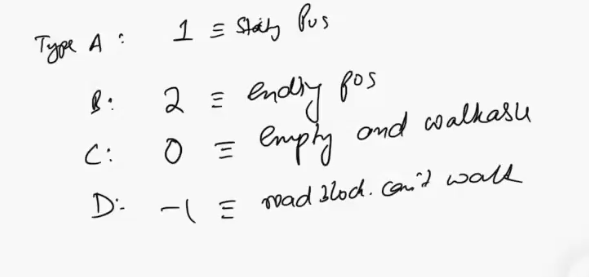 Type A : 1 ≡ Stating Pos
B: 2 ≡ ending pos
C: 0 ≡ empty and walkable
D:- -1 ≡ road block. can't walk